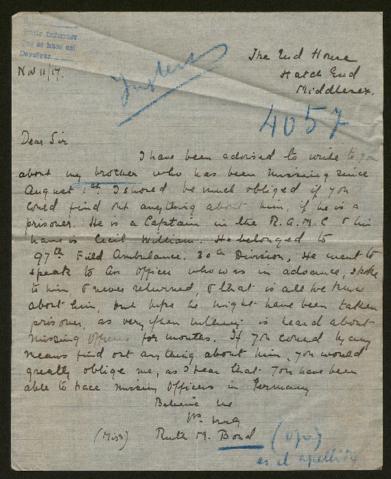 Nov 11/17.
The End House
Hatch End
Middlesex.
4057
Dear Sir
I have been advised to write to you
about my brother who has been missing since
August 1st. I should be much obliged if you
could find out anything about him, if he is a
prisoner. He is a Captain in the R.A.M.C & his
name is Cecil William. He belonged to
97th Field Ambulance. 30th Division, He went to
speak to an officer who was in advance, spoke
to him & never returned, & that is all we know
about him, but hope he might have been taken
prisoner, as very often nothing is heard about
missing officers for months. If you could by any
means find out anything about him, you would
greatly oblige me, as I hear that you have been
able to trace missing officers in Germany
Believe me
Yrs truly
(Miss) Ruth M. Bond (ojo)
es el apellido